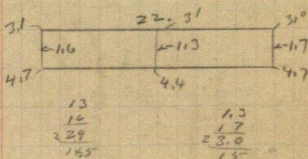 22.
3.1 3.1 3.0
1.6 1.3 1.7
4.7 4.4 4.7
13
16
2 29
1 4.5
1.3
1 7
2 3.0
1.5